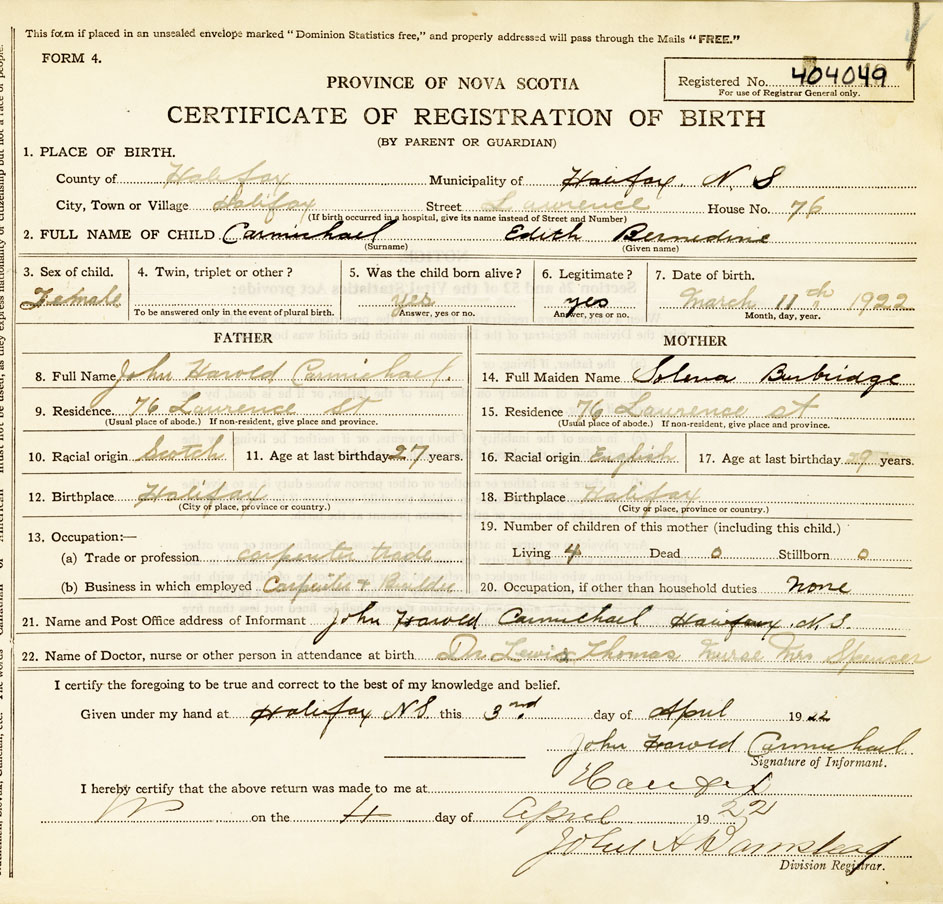 This form if placed in an unsealed envelope marked "Dominion Statistics free," and properly addressed will pass through the Mails "FREE."
FORM 4.
Registered No. 404049
For use of Registrar General only.
PROVINCE OF NOVA SCOTIA
CERTIFICATE OF REGISTRATION OF BIRTH
(BY PARENT OR GUARDIAN)
1. PLACE OF BIRTH.
County of Halifax Municipality of Halifax. N. S
City, Town or Village Halifax Street Lawrence House No. 76
(If birth occurred in a hospital, give its name instead of Street and Number)
2. FULL NAME OF CHILD Carmichael Edith Bernedine
(Surname) (Given name)
3. Sex of child. 4. Twin, triplet or other? 5. Was the child born alive? 6. Legitimate? 7. Date of birth.
Female yes yes March 11th 1922
To be answered only in the event of plural birth. Answer, yes or no. Answer, yes or no. Month, day, year.
FATHER MOTHER
8. Full Name John Harold Carmichael. 14. Full Maiden Name Solena Burbridge
9. Residence. 76 Lawrence st 15. Residence 76 Lawrence st
(Usual place of abode.) If non-resident, give place and province. (Usual place of abode.) If non-resident, give place and province.
10. Racial origin Scotch 11. Age at last birthday 27 years. 16. Racial origin English 17. Age at last birthday 29 years.
12. Birthplace Halifax 18. Birthplace Halifax
(City or place, province or country.) (City or place, province or country.)
13. Occupation:— 19. Number of children of this mother (including this child.)
(a) Trade or profession carpenter trade Living 4 Dead 0 Stillborn 0
(b) Business in which employed Carpenter + Builder 20. Occupation, if other than household duties None
21. Name and Post Office address of Informant John Harold Carmichael Halifax N.S.
22. Name of Doctor, nurse or other person in attendance at birth Dr Lewis Thomas nurse Mrs Spenser
I certify the foregoing to be true and correct to the best of my knowledge and belief.
Given under my hand at Halifax NS this 3rd day of April 1922
John Harold Carmichael
Signature of Informant.
I hereby certify that the above return was made to me at Halifax
on the 4 day of April 1922
John A Barnstead
Division Registrar.